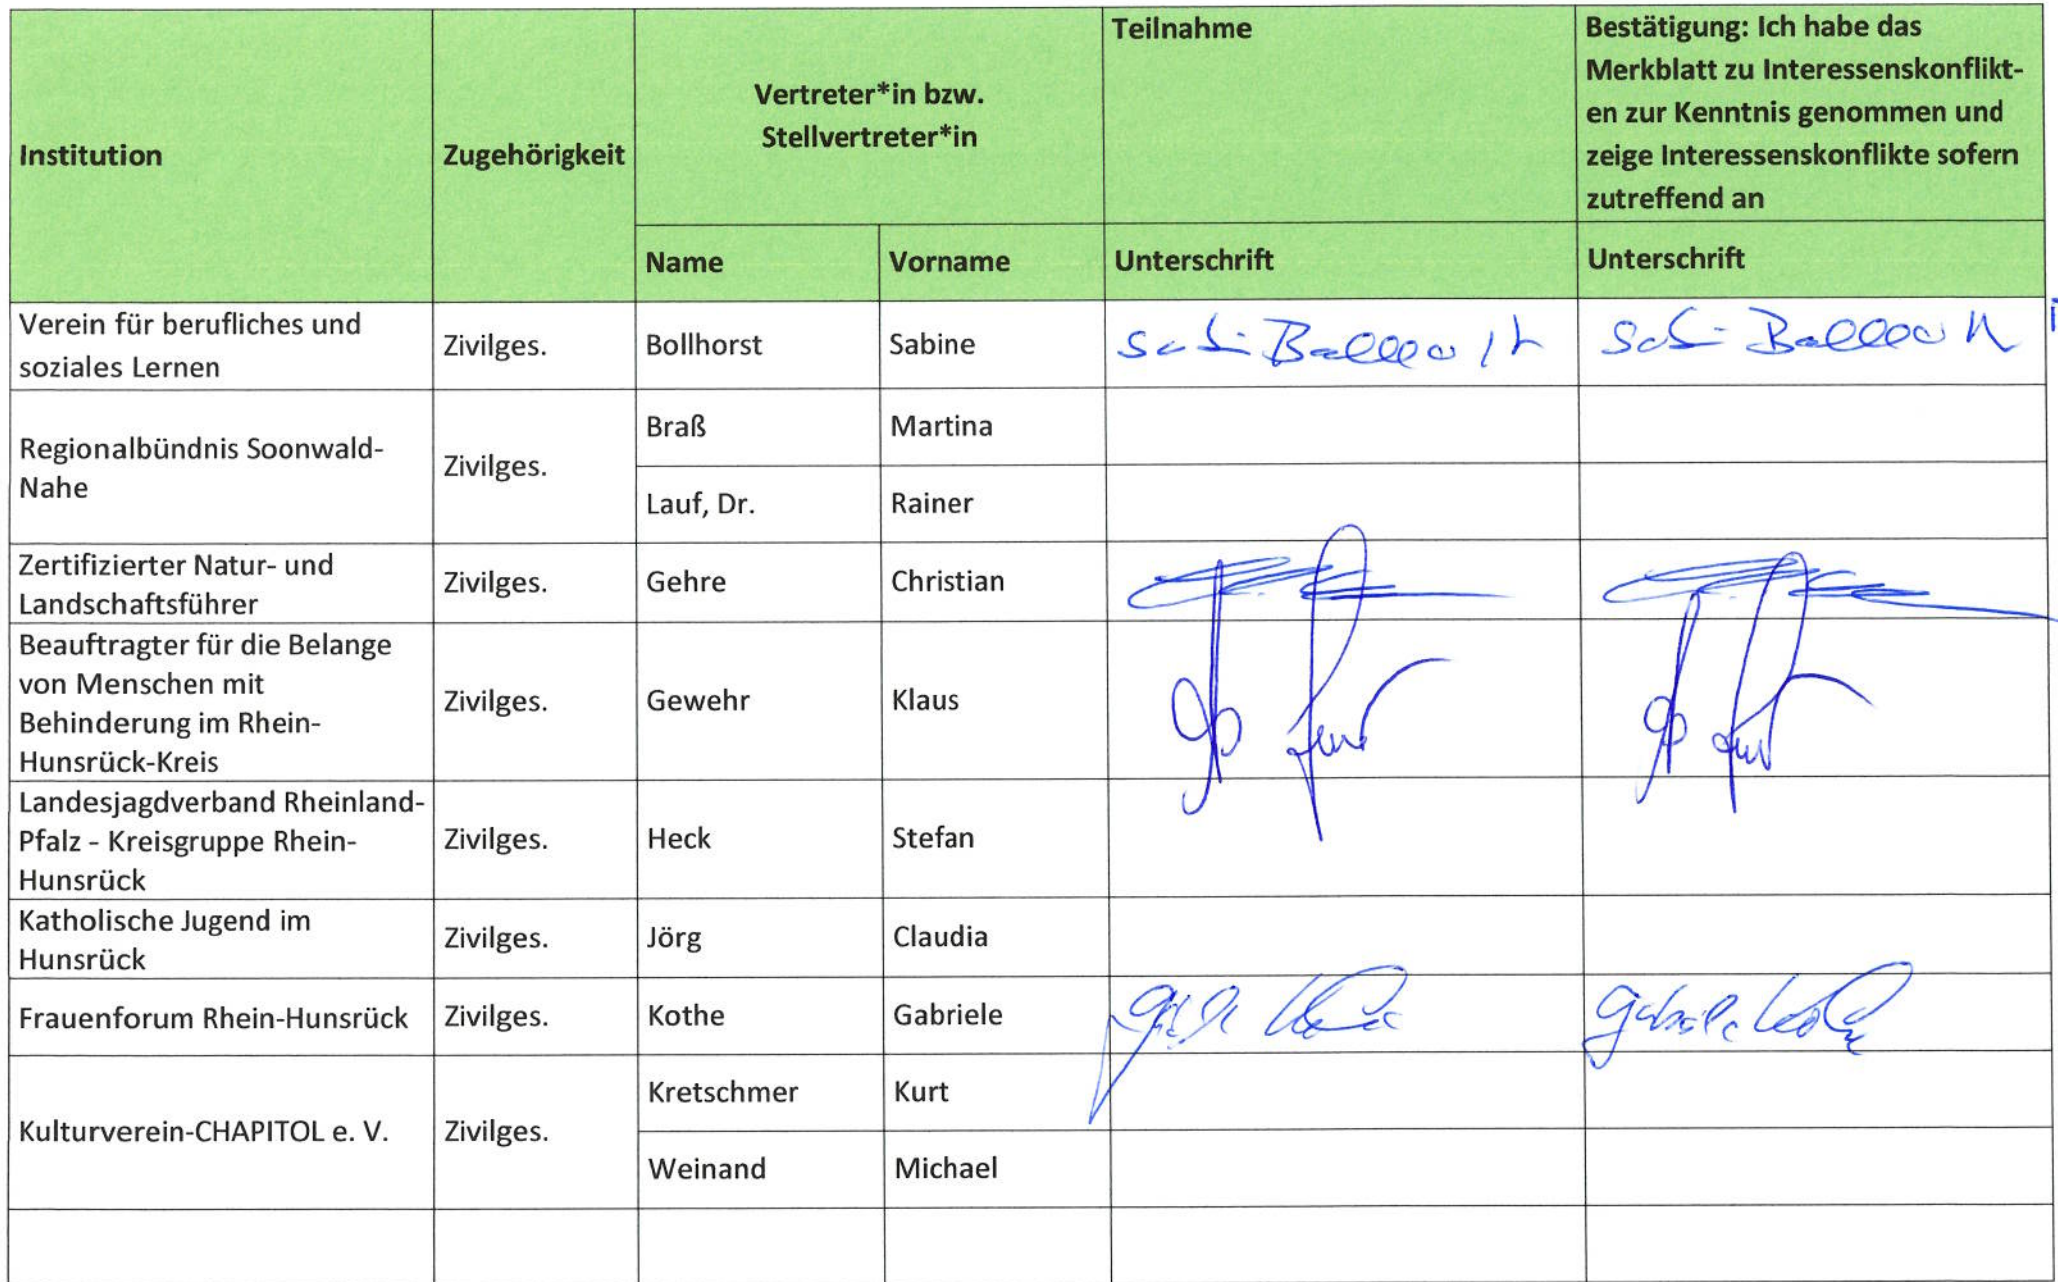 Institution
Zugehörigkeit
Vertreter*in bzw.
Stellvertreter*in
Teilnahme
Bestätigung: Ich habe das
Merkblatt zu Interessenskonflikt-
en zur Kenntnis genommen und
zeige Interessenskonflikte sofern
zutreffend an
Name
Vorname
Unterschrift
Unterschrift
Verein für berufliches und
soziales Lernen
Zivilges.
Bollhorst
Sabine
Regionalbündnis Soonwald-
Nahe
Zivilges.
Braß
Martina
Lauf, Dr.
Rainer
Zertifizierter Natur- und
Landschaftsführer
Zivilges.
Gehre
Christian
Beauftragter für die Belange
von Menschen mit
Behinderung im Rhein-
Hunsrück-Kreis
Zivilges.
Gewehr
Klaus
Landesjagdverband Rheinland-
Pfalz - Kreisgruppe Rhein-
Hunsrück
Zivilges.
Heck
Stefan
Katholische Jugend im
Hunsrück
Zivilges.
Jörg
Claudia
Frauenforum Rhein-Hunsrück
Zivilges.
Kothe
Gabriele
Kulturverein-CHAPITOL e. V.
Zivilges.
Kretschmer
Kurt
Weinand
Michael